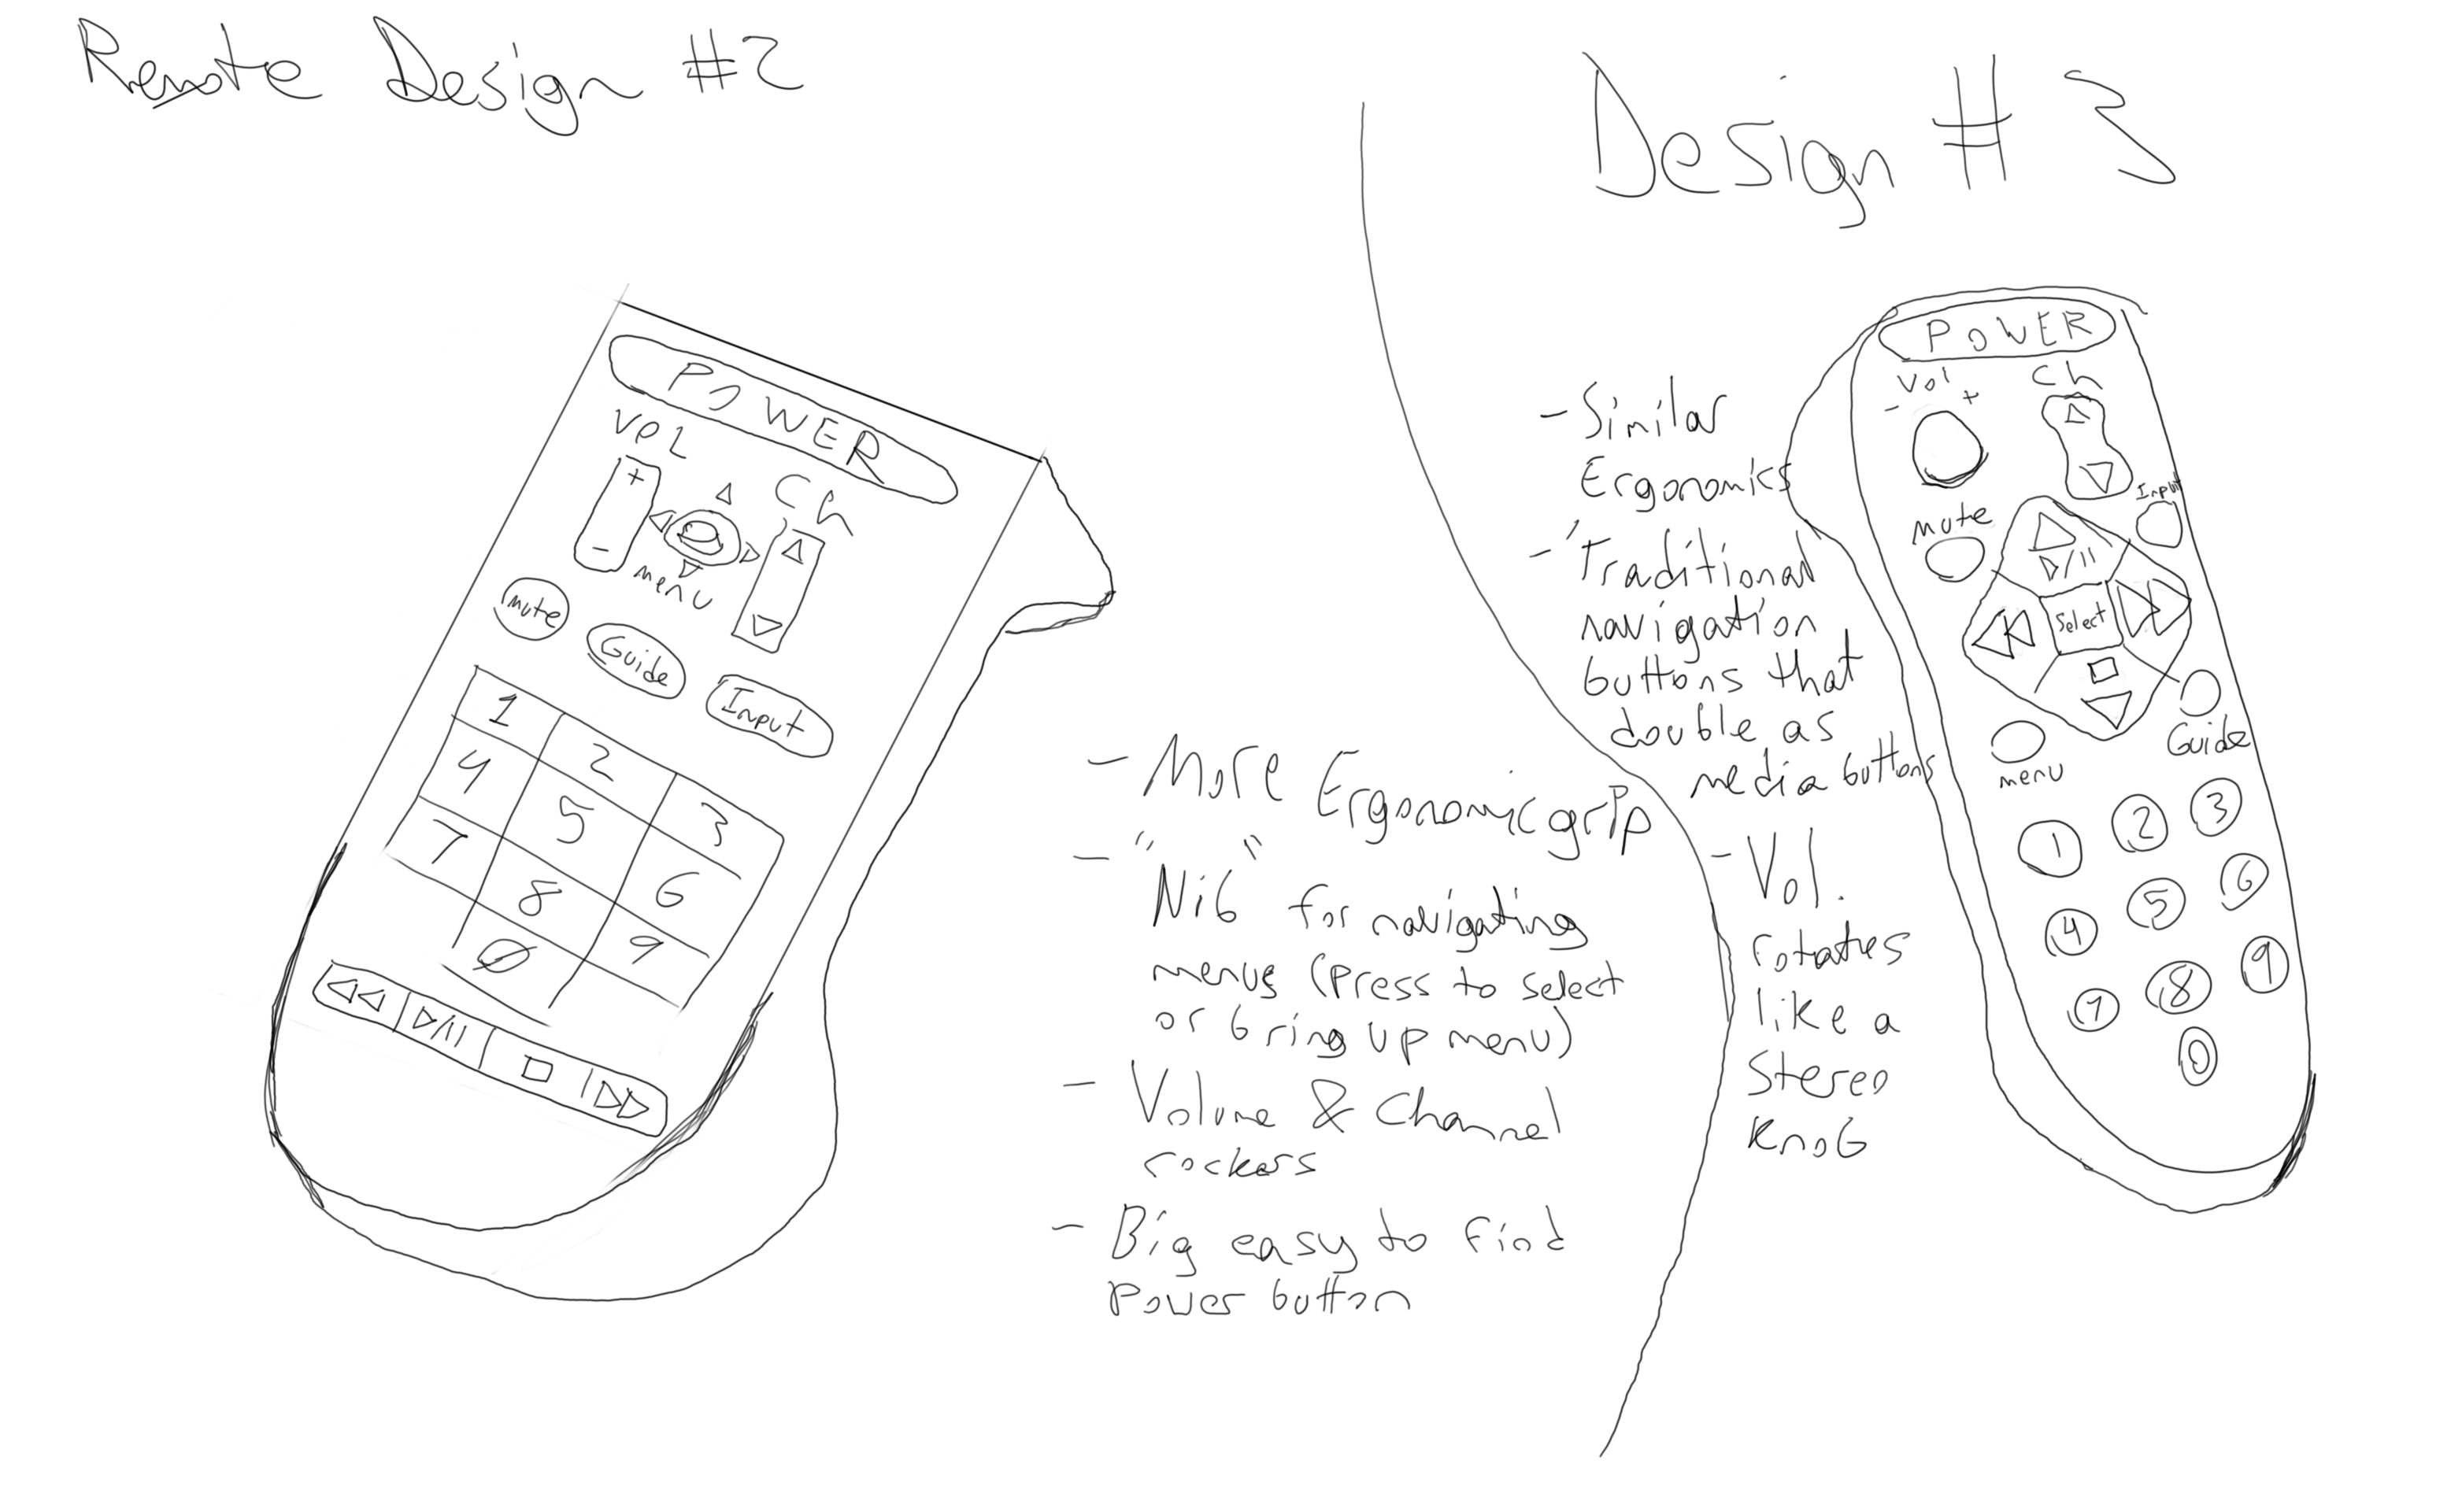 Remote Design #2
POWER
VOL
Ch
+
-
menu
Mute
Guide
Input
1 2 3
4 5 6
7 8 9
0
- More Ergonomic grip
- "Nib" for navigating
menus (press to select
or bring up menu)
- Volume & Channel
rockers
- Big easy to find
Power button
Design #3
- Similar
Ergonomics
- Traditional
navigation
buttons that
double as
media buttons
- Vol.
rotates
like a
Stereo
Knob
POWER
Vol
- +
Ch
Input
Mute
Select
Guide
menu
1 2 3
4 5 6
7 8 9
0